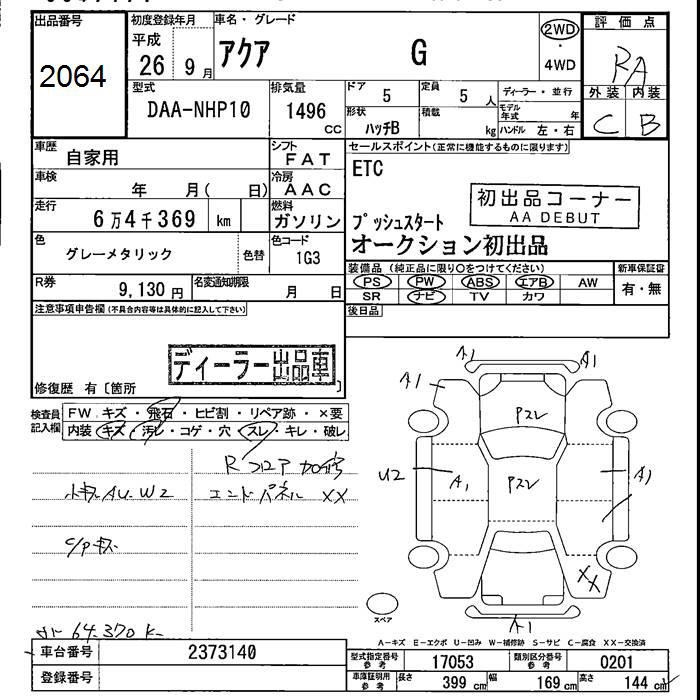 出品番号 初度登録年月 車名・グレード 評価点
2064 平成 26 9月 アクア G 2WD・4WD RA
型式 排気量 ドア 定員 ディーラー・並行 外装 内装
DAA-NHP10 1496 CC 5 5人 モデル年式 年 C B
形状 積載 ハンドル 左・右
ハッチB kg
車歴 自家用 シフト FAT セールスポイント(正常に機能するものに限ります)
車検 年 月( 日) 冷房 AAC ETC
走行 6万4千369 km 燃料 ガソリン 初出品コーナー
AA DEBUT
プッシュスタート
オークション初出品
色 グレーメタリック 色替 色コード 1G3
装備品(純正品に限り○をつけてください) 新車保証書
PS PW ABS エアB AW 有・無
SR ナビ TV カワ
R券 9,130円 名変通知期限 月 日
後日品
注意事項申告欄(不具合内容等は具体的に記入して下さい)
ディーラー出品車
修復歴 有〔箇所 〕
検査員記入欄 FW キズ・飛石・ヒビ割・リペア跡・×要
内装 キズ・汚レ・コゲ・穴・スレ・キレ・破レ
Rフロア加修
小キズ AU.W2 エンドパネル XX
C/Pキズ
64.370K
A1 A1
A1
アスレ
U2 A1 アスレ A1
XX
A1
スペア
A-キズ E-エクボ U-凹み W-補修跡 S-サビ C-腐食 XX-交換済
車台番号 2373140 型式指定番号 参考 17053 類別区分番号 参考 0201
登録番号 車庫証明用 参考 長さ 399cm 幅 169cm 高さ 144cm